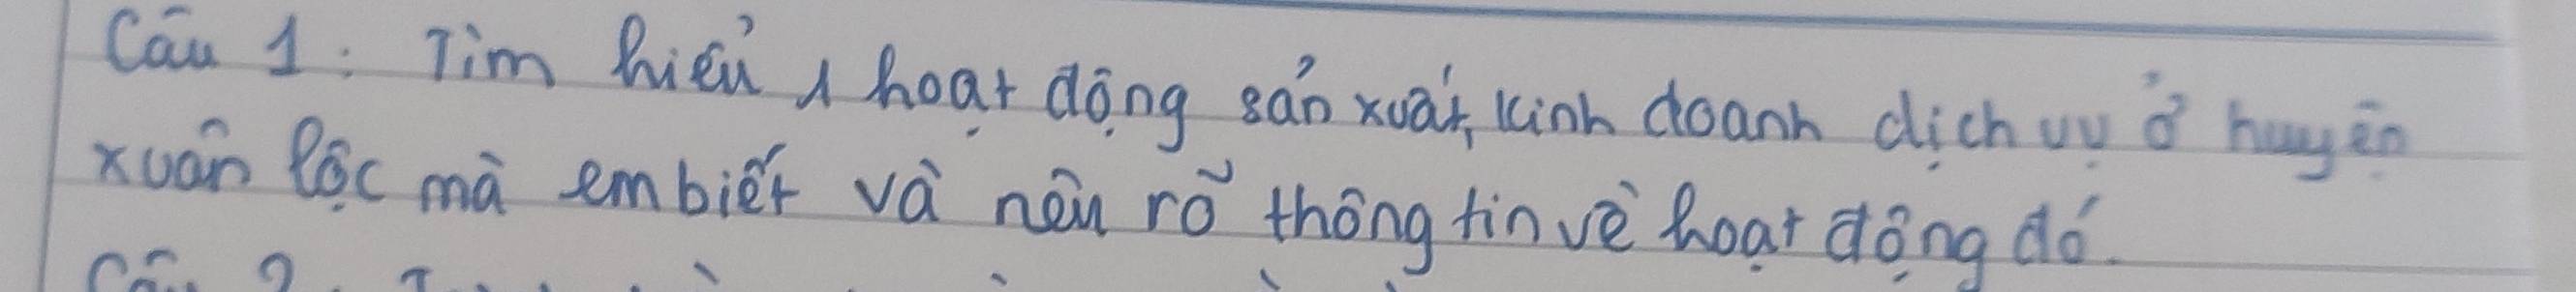 Câu 1: Tìm hiểu 1 hoạt động sản xuất, kinh doanh dịch vụ ở huyện
xuân lộc mà em biết và nêu rõ thông tin về hoạt động đó.
Câu 2: